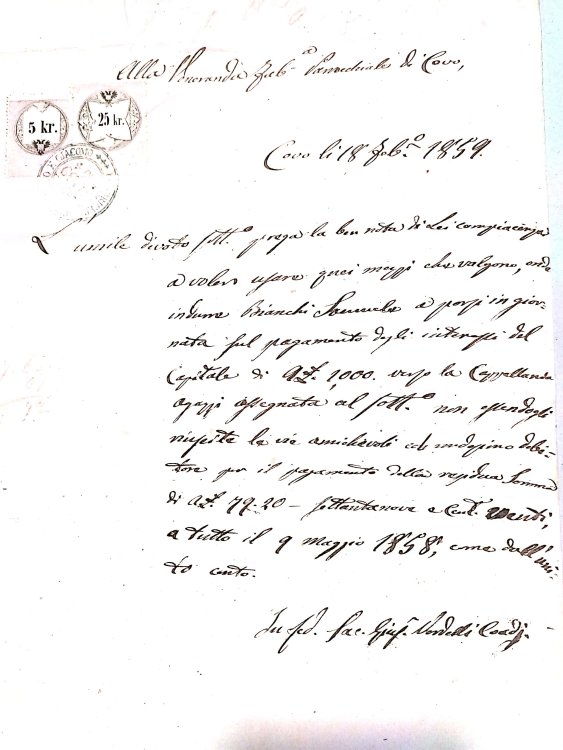 Alla Veneranda Fab.ª Parrocchiale di Covo,
5 kr.
25 kr.
GIACOMO
Covo li 18 Feb.º 1859.
L'umile divoto sott.º prega la ben nota di Lei compiacenza
a volere usare quei mezzi che valgono, onde
indurre Bianchi Samuele a porsi in gior-
nata sul pagamento degli interessi del
Capitale di 1,000. verso la Cappellania
Agazzi assegnata al sott.º non essendogli
riuscite le vie amichevoli col medesimo debi-
tore per il pagamento della residua Somma
di 79.20 – settantanove e Cent. venti,
a tutto il 9 Maggio 1858, come dall'uni-
to conto.
In fed. Sac. Gius.e Coadj.